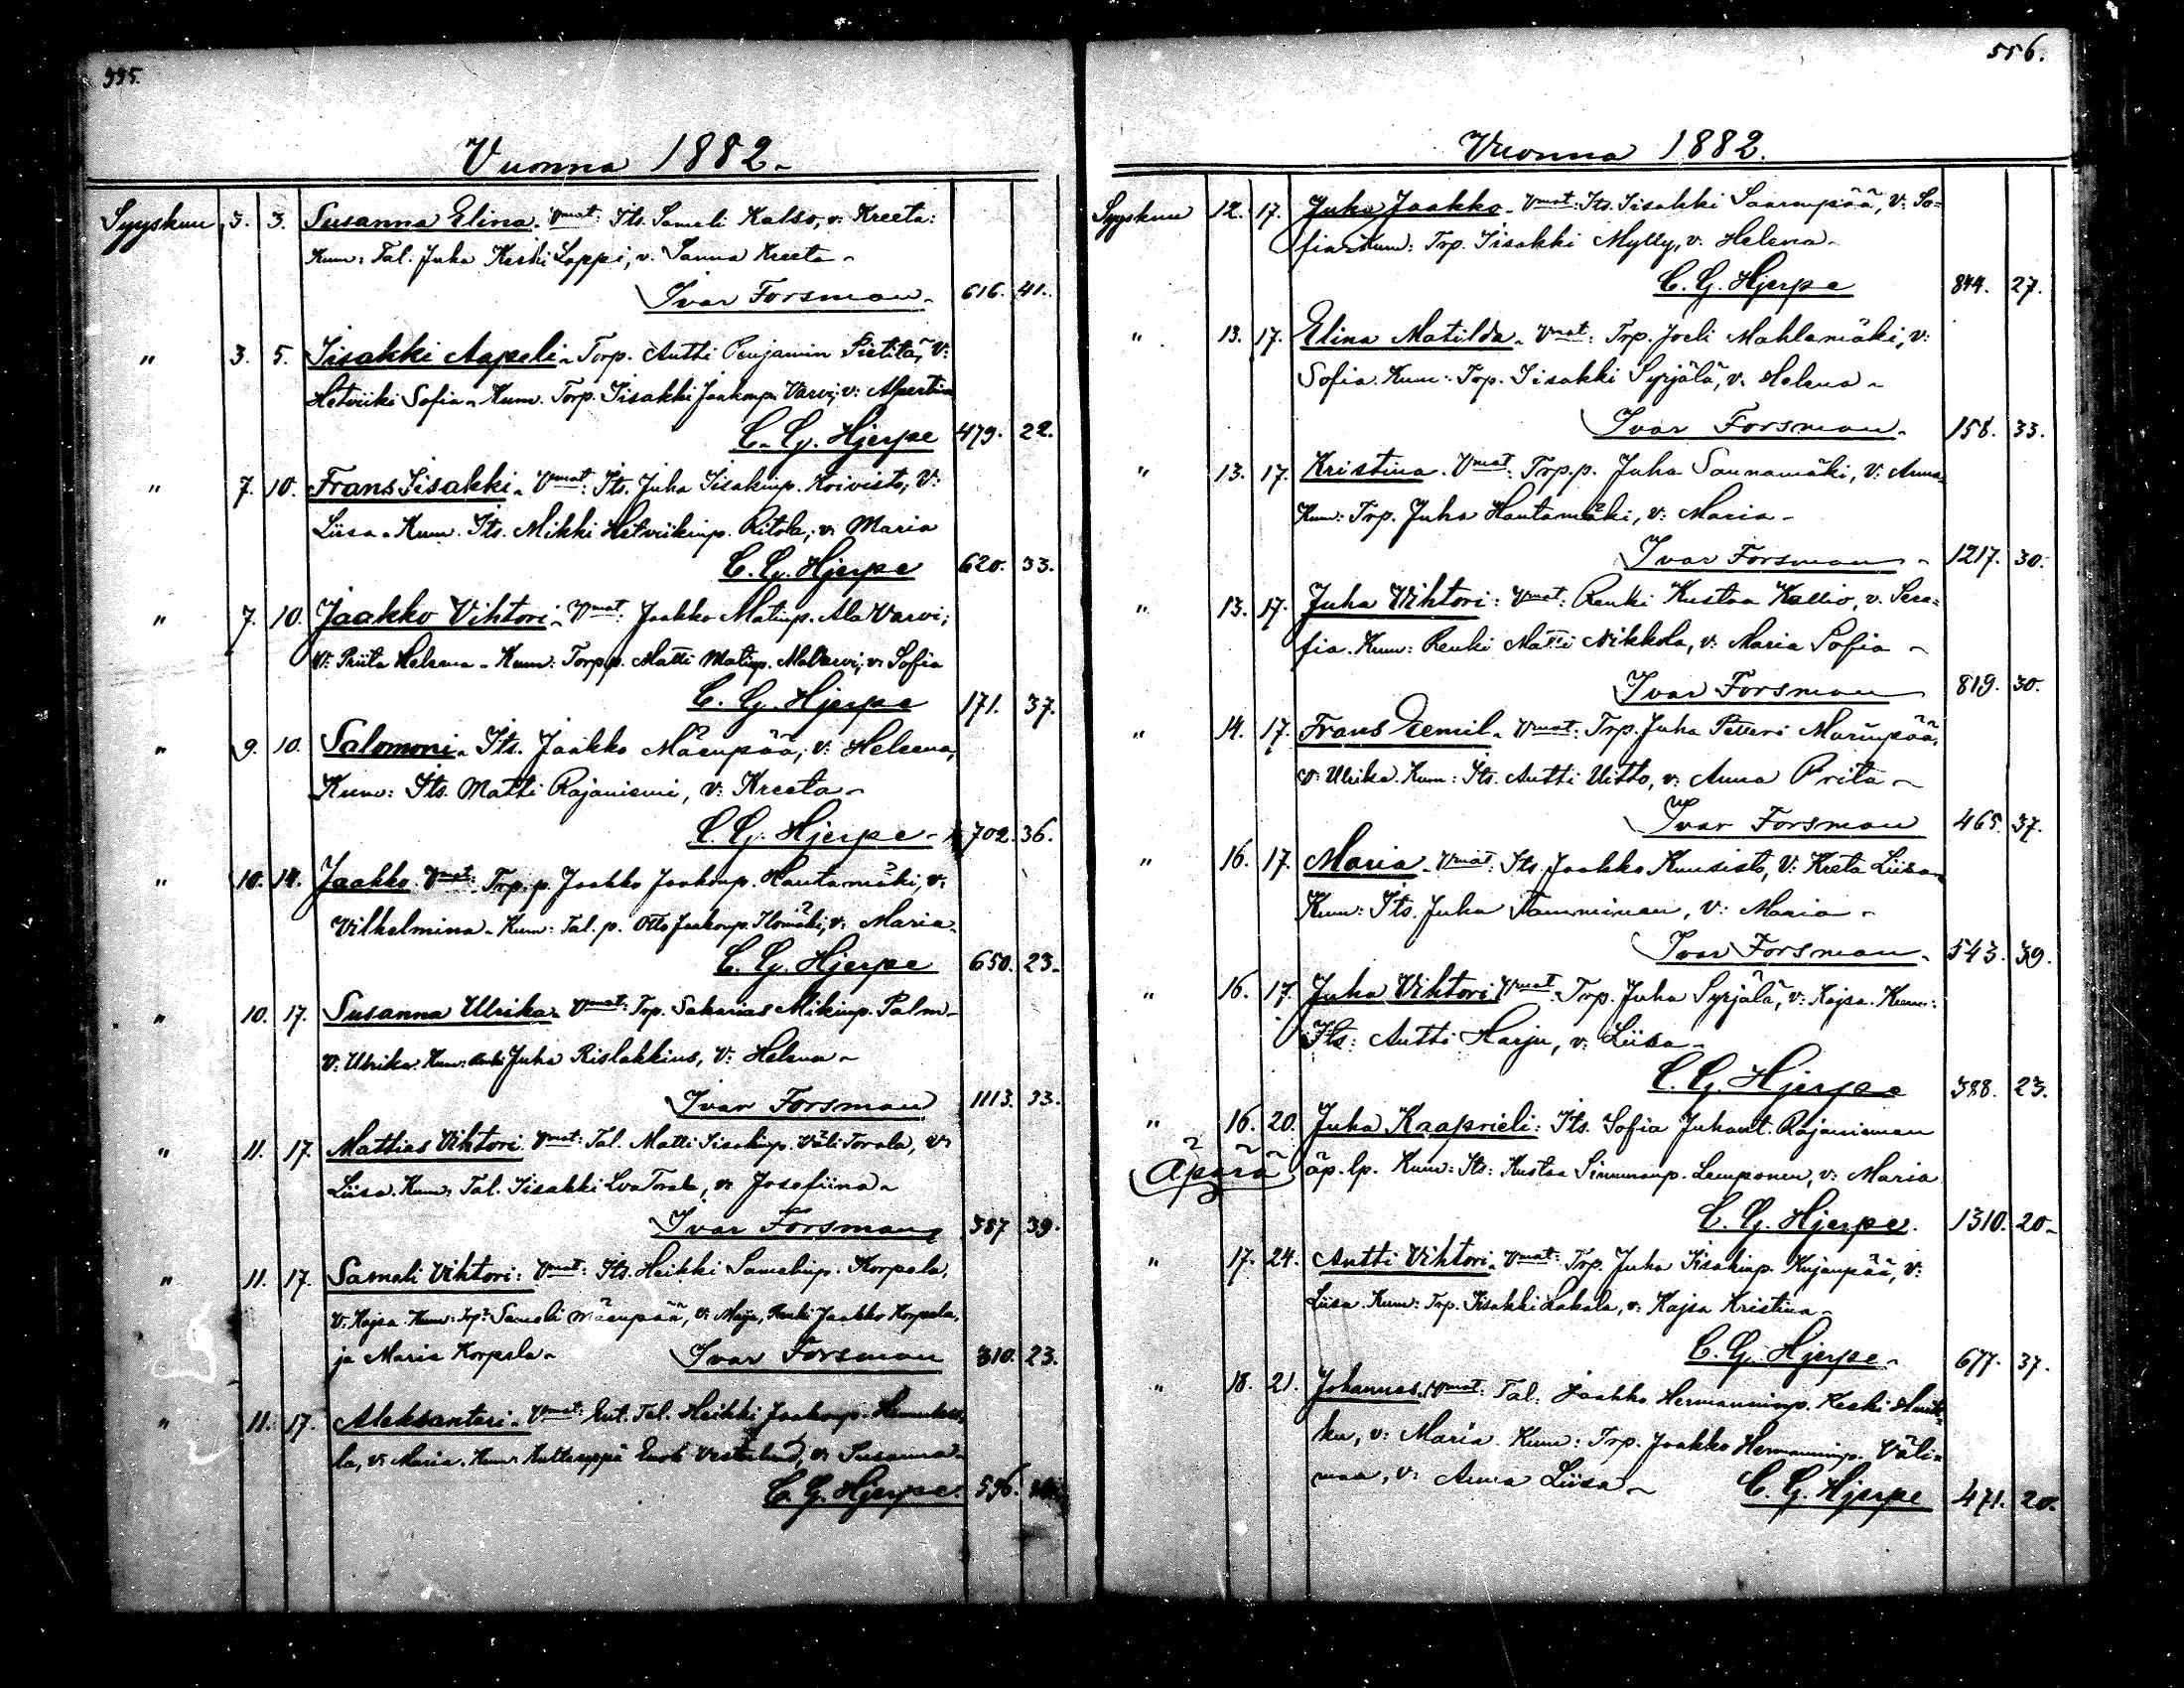 555.
Vuonna 1882.
Syyskuu 3. 3. Susanna Elina. Vmat: Its. Sameli Kalso, v: Kreeta:
Kum: Tal. Juha Keski Loppi, v. Sanna Kreeta
Ivar Forsman 616. 41.
" 3. 5. Iisakki Aapeli. Torp. Antti Penjamin Pietilä, V:
Hetviiki Sofia. Kum. Torp. Iisakki Jaakonp. Varvi; v: Alpertina
C. G. Hjerpe 479. 22.
" 7. 10. Frans Iisakki. Vmat: Its. Juha Iisakinp. Koivisto; V:
Liisa. Kum. Its. Mikki Hetviikinp. Ritola; v: Maria
C. G. Hjerpe 620. 33.
" 7. 10. Jaakko Vihtori. Vmat: Jaakko Matinp. Ala Varvi;
V: Priita Helena. Kum: Torpp. Matti Matinp. v: Sofia
C. G. Hjerpe 171. 37.
" 9. 10. Salomoni. Its. Jaakko Mäenpää; v: Helena,
Kum: Its. Matti Rajaniemi, v: Kreeta
C. G. Hjerpe 702. 36.
" 10. 14. Jaakko Vmat: Trp. p. Jaakko Jaakonp. Hautamäki; v:
Vilhelmina. Kum: Tal. p. Otto Jaakonp. Ilomäki; v: Maria
C. G. Hjerpe 650. 23.
" 10. 17. Susanna Ulrika. Vmat: Trp. Sakarias Mikinp. Palm
V: Ulrika. Kum: Juha Rislakkius, V: Helena
Ivar Forsman 1113. 33.
" 11. 17. Mattias Vihtori Vmat: Tal. Matti Iisakinp. Väli Torala, V:
Liisa. Kum: Tal. Iisakki Torala, v: Josefiina
Ivar Forsman 387 39.
" 11. 17. Sameli Vihtori: Vmat: Its. Heikki Samelinp. Korpela,
V: Kajsa. Kum: Trp: Sameli Mäenpää, V: Maija, Renki Jaakko Korpela,
ja Maria Korpela Ivar Forsman 310. 23.
" 11. 17. Aleksanteri. Vmat: Ent. Tal. Heikki Jaakonp.
la, v: Maria. Kum: Vesterlund, v: Susanna
C. G. Hjerpe. 596.
556.
Vuonna 1882.
Syyskuu 12. 17. Juha Jaakko. Vmat: Its. Iisakki Saarenpää, V: So=
fia. Kum: Trp. Iisakki Mylly, v: Helena
C. G. Hjerpe 844. 27.
" 13. 17. Elina Matilda. Vmat: Trp. Joeli Mahlamäki, v:
Sofia. Kum: Trp. Iisakki Syrjälä, v. Helena
Ivar Forsman 158. 33.
" 13. 17. Kristina. Vmat: Trp.p. Juha Saunamäki, V: Anna
Kum: Trp. Juha Hautamäki, v: Maria
Ivar Forsman 1217. 30.
" 13. 17. Juha Vihtori: Vmat: Renki Kustaa Kallio, v. Sera=
fia. Kum: Renki Matti Nikkola, v: Maria Sofia
Ivar Forsman 819. 30.
" 14. 17. Frans Eemil. Vmat: Trp. Juha Petteri Marinpää,
V: Ulrika. Kum: Its. Antti Uitto, v: Anna Prita
Ivar Forsman 465. 37.
" 16. 17. Maria. Vmat: Its. Jaakko Kuusisto, V: Kreta Liisa
Kum: Its. Juha Tamminen, V: Maria
Ivar Forsman 543. 39.
" 16. 17. Juha Vihtori Vmat. Trp. Juha Syrjälä, v: Kajsa. Kum:
Its: Antti Harju, v: Liisa
C. G. Hjerpe 388. 23.
" 16. 20. Juha Kaaprieli: Its. Sofia Juhant. Rajaniemen
Äpärä äp. lp. Kum: Its: Kustaa Simunanp. Lemponen, v: Maria
C. G. Hjerpe. 1310. 20
" 17. 24. Antti Vihtori. Vmat: Trp. Juha Iisakinp. Kujanpää, v:
Liisa. Kum: Trp. Iisakki Lakala, v: Kajsa Kristina
C. G. Hjerpe 677. 37.
" 18. 21. Johannes Vmat: Tal. Jaakko Hermanninp. Keski
ku, v: Maria. Kum: Trp. Jaakko Hermanninp. Väli=
maa, v: Anna Liisa C. G. Hjerpe 471. 20.